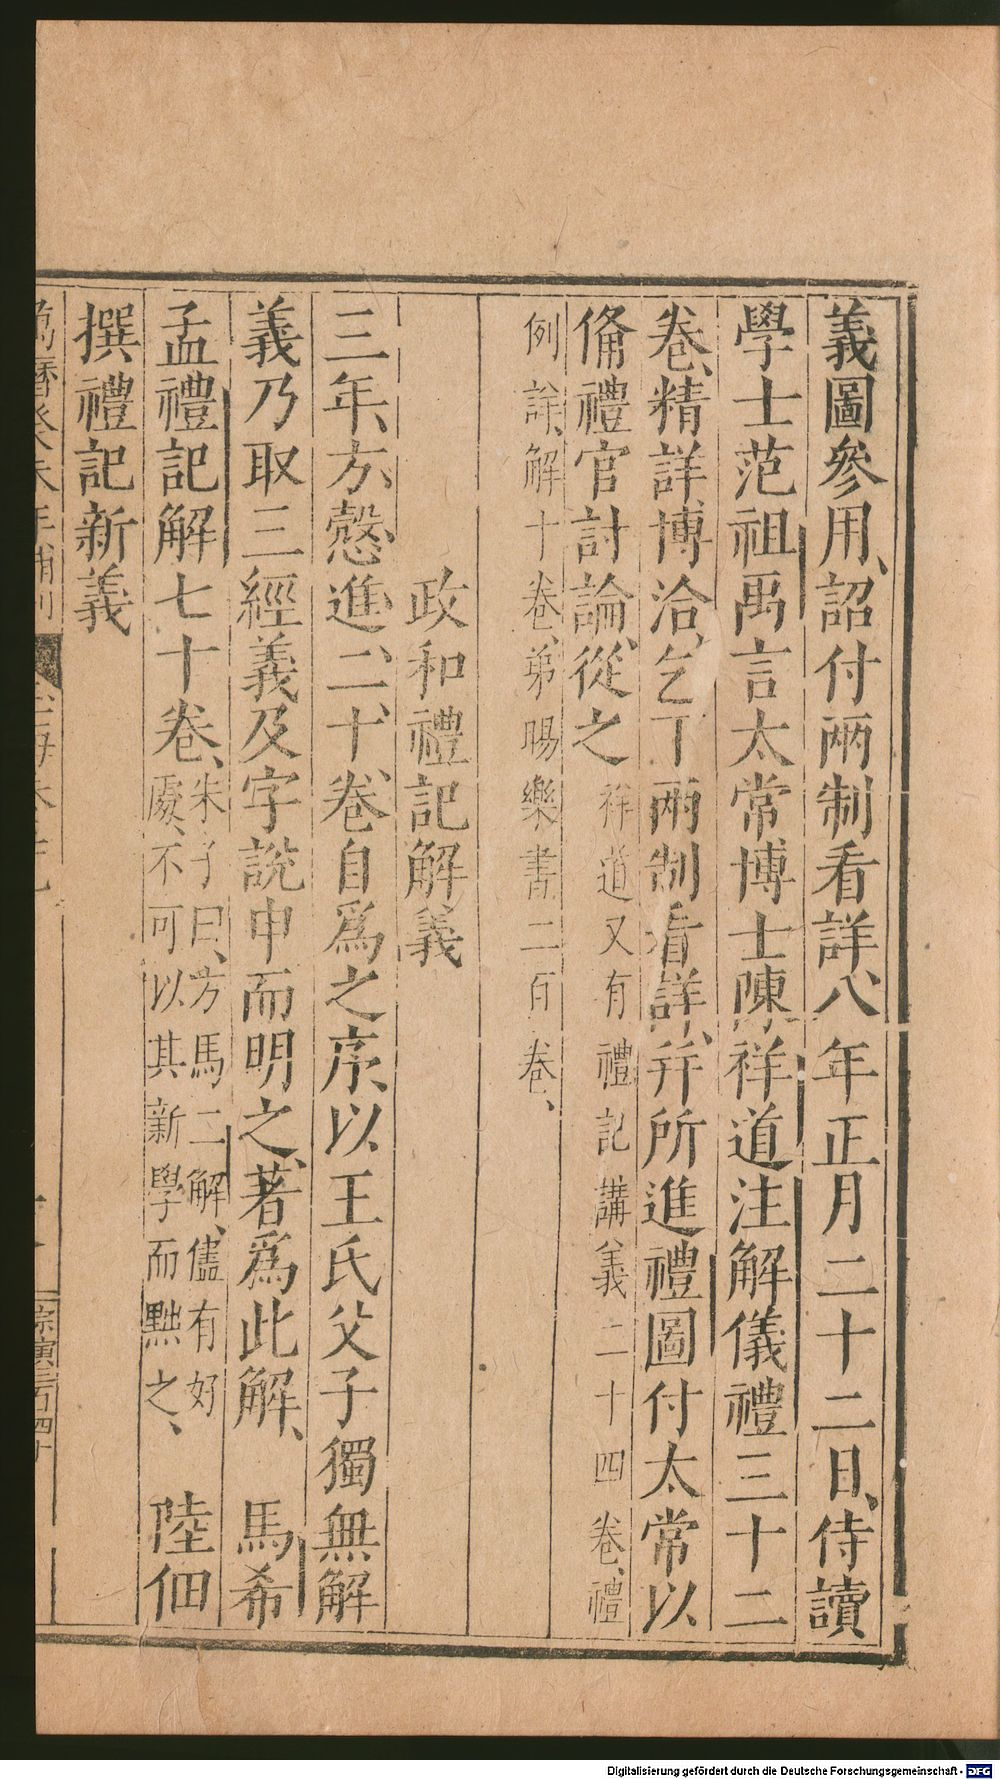 義圖參用、詔付兩制看詳、八年正月二十二日、侍讀
學士范祖禹言太常博士陳祥道注解儀禮三十二
卷、精詳博洽、乞下兩制看詳、幷所進禮圖付太常以
備禮官討論、從之祥道又有禮記講義二十四卷、禮
例詳解十卷、弟暘樂書二百卷、
政和禮記解義
三年、方慤進二十卷自爲之序、以王氏父子獨無解
義乃取三經義及字說申而明之、著爲此解、 馬希
孟禮記解七十卷、朱子曰、方馬二解、儘有好
處、不可以其新學而黜之、 陸佃
撰禮記新義
萬曆癸未年補刊
Digitalisierung gefördert durch die Deutsche Forschungsgemeinschaft - DFG